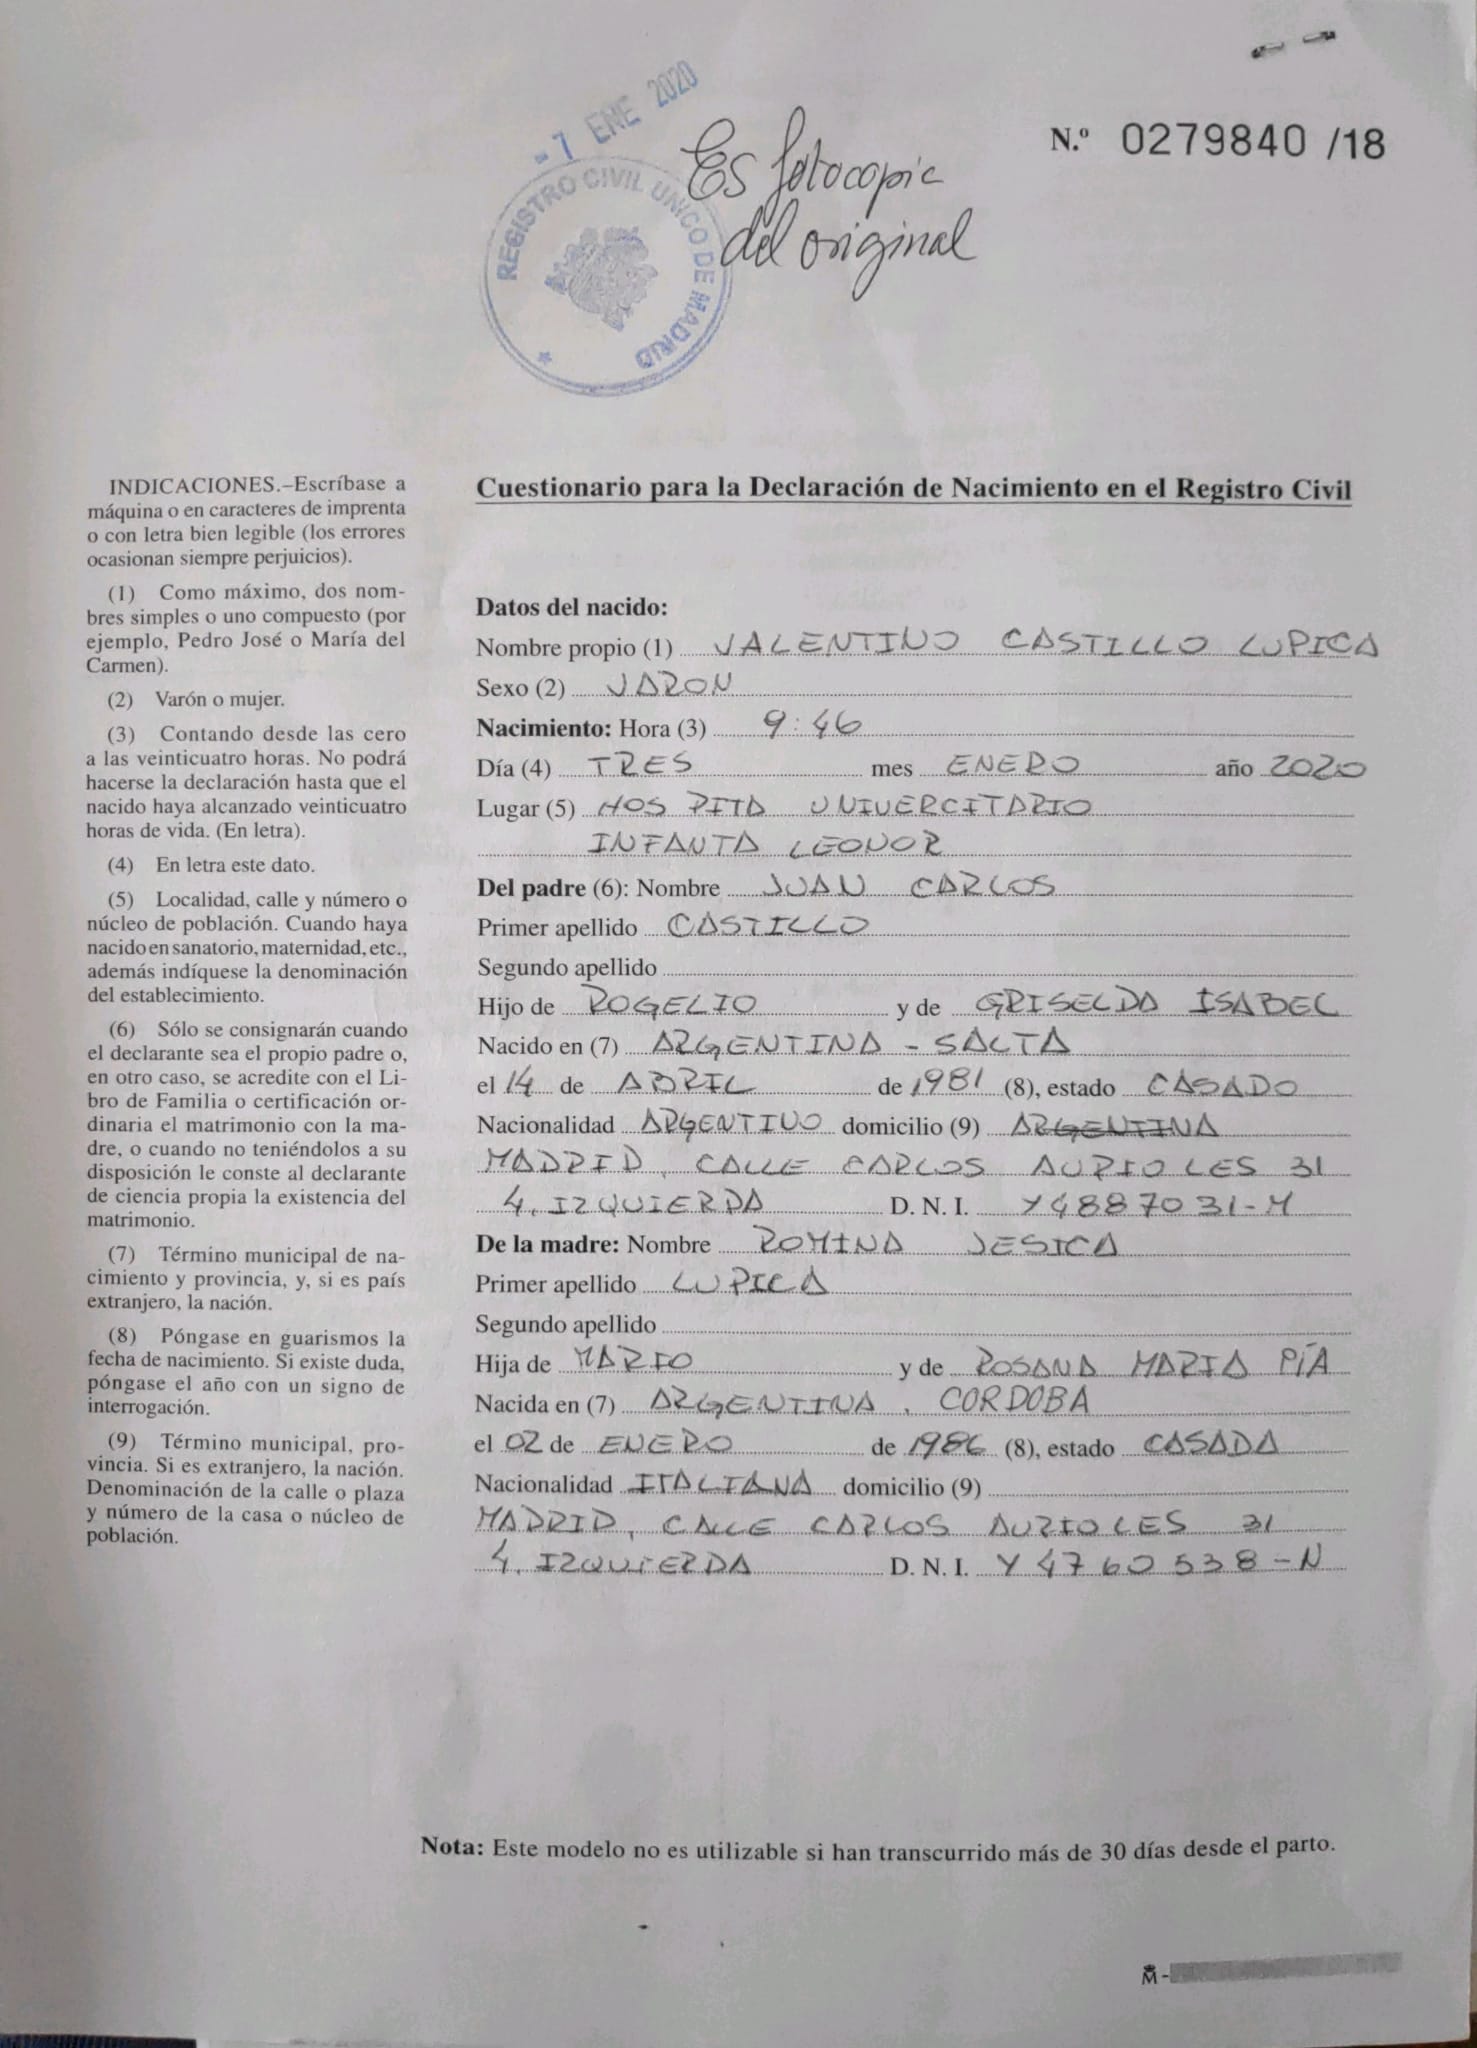 -7 ENE 2020
REGISTRO CIVIL UNICO DE MADRID
Es fotocopia
del original
N.º 0279840 /18
INDICACIONES.–Escríbase a
máquina o en caracteres de imprenta
o con letra bien legible (los errores
ocasionan siempre perjuicios).
(1) Como máximo, dos nom-
bres simples o uno compuesto (por
ejemplo, Pedro José o María del
Carmen).
(2) Varón o mujer.
(3) Contando desde las cero
a las veinticuatro horas. No podrá
hacerse la declaración hasta que el
nacido haya alcanzado veinticuatro
horas de vida. (En letra).
(4) En letra este dato.
(5) Localidad, calle y número o
núcleo de población. Cuando haya
nacido en sanatorio, maternidad, etc.,
además indíquese la denominación
del establecimiento.
(6) Sólo se consignarán cuando
el declarante sea el propio padre o,
en otro caso, se acredite con el Li-
bro de Familia o certificación or-
dinaria el matrimonio con la ma-
dre, o cuando no teniéndolos a su
disposición le conste al declarante
de ciencia propia la existencia del
matrimonio.
(7) Término municipal de na-
cimiento y provincia, y, si es país
extranjero, la nación.
(8) Póngase en guarismos la
fecha de nacimiento. Si existe duda,
póngase el año con un signo de
interrogación.
(9) Término municipal, pro-
vincia. Si es extranjero, la nación.
Denominación de la calle o plaza
y número de la casa o núcleo de
población.
Cuestionario para la Declaración de Nacimiento en el Registro Civil
Datos del nacido:
Nombre propio (1) VALENTINO CASTILLO LUPICA
Sexo (2) VARON
Nacimiento: Hora (3) 9:46
Día (4) TRES mes ENERO año 2020
Lugar (5) HOSPITA UNIVERCITARIO
INFANTA LEONOR
Del padre (6): Nombre JUAN CARLOS
Primer apellido CASTILLO
Segundo apellido
Hijo de ROGELIO y de GRISELDA ISABEL
Nacido en (7) ARGENTINA - SALTA
el 14 de ABRIL de 1981 (8), estado CASADO
Nacionalidad ARGENTINO domicilio (9) ARGENTINA
MADRID, CALLE CARLOS AURIOLES 31
4, IZQUIERDA D. N. I. Y4887031-M
De la madre: Nombre ROMINA JESICA
Primer apellido LUPICA
Segundo apellido
Hija de MARIO y de ROSANA MARIA PÍA
Nacida en (7) ARGENTINA, CORDOBA
el 02 de ENERO de 1986 (8), estado CASADA
Nacionalidad ITALIANA domicilio (9)
MADRID, CALLE CARLOS AURIOLES 31
4, IZQUIERDA D. N. I. Y4760538-N
Nota: Este modelo no es utilizable si han transcurrido más de 30 días desde el parto.
M-